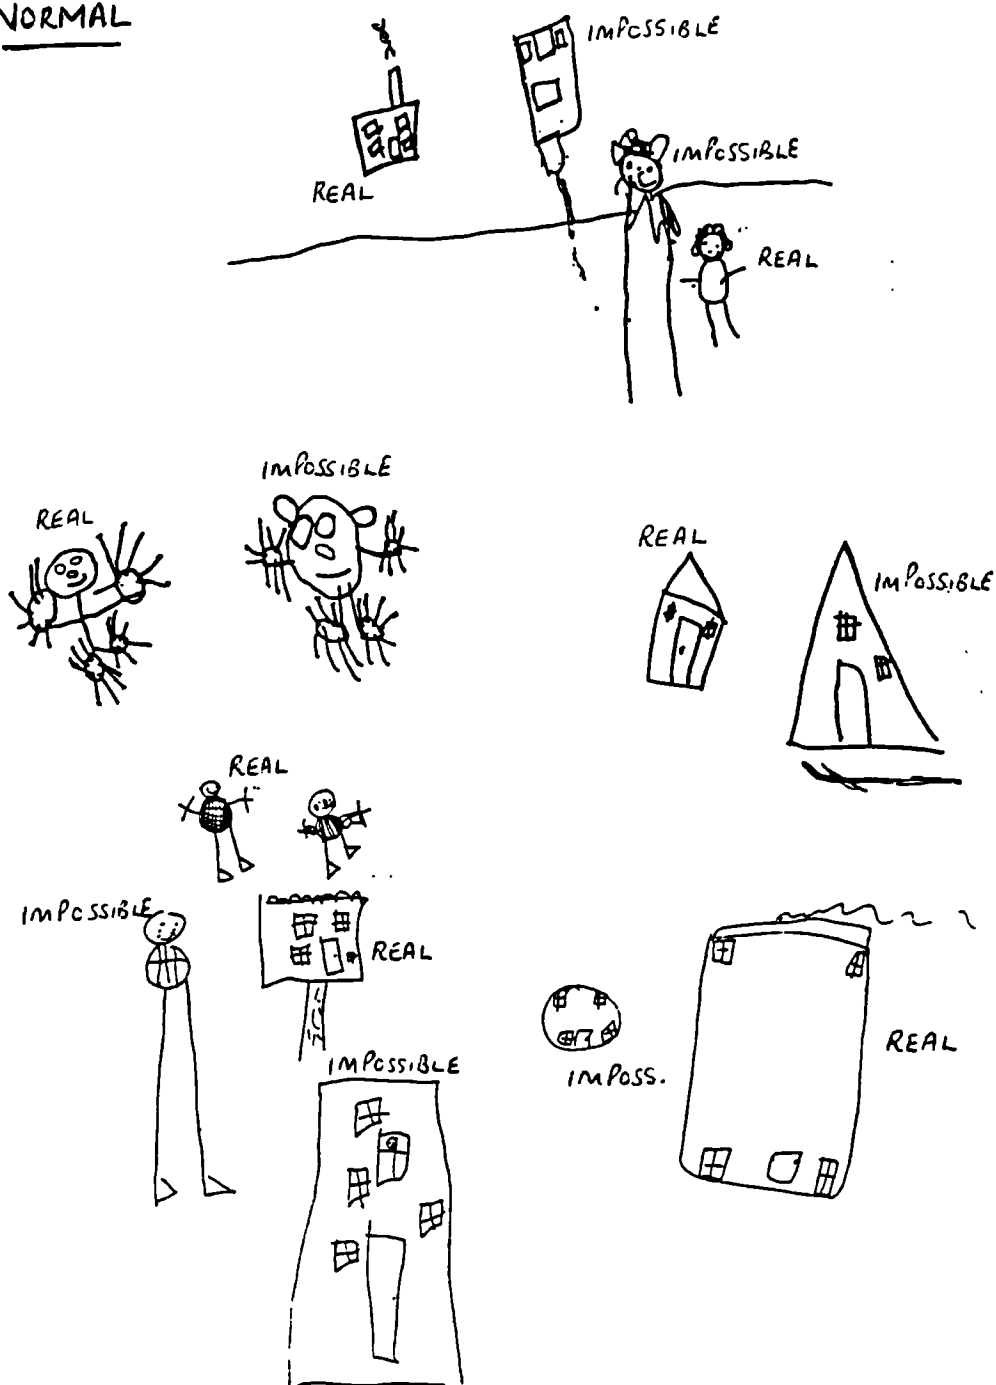 NORMAL
IMPOSSIBLE
IMPOSSIBLE
REAL
REAL
IMPOSSIBLE
REAL
REAL
IMPOSSIBLE
REAL
IMPOSSIBLE
REAL
REAL
IMPOSS.
IMPOSSIBLE